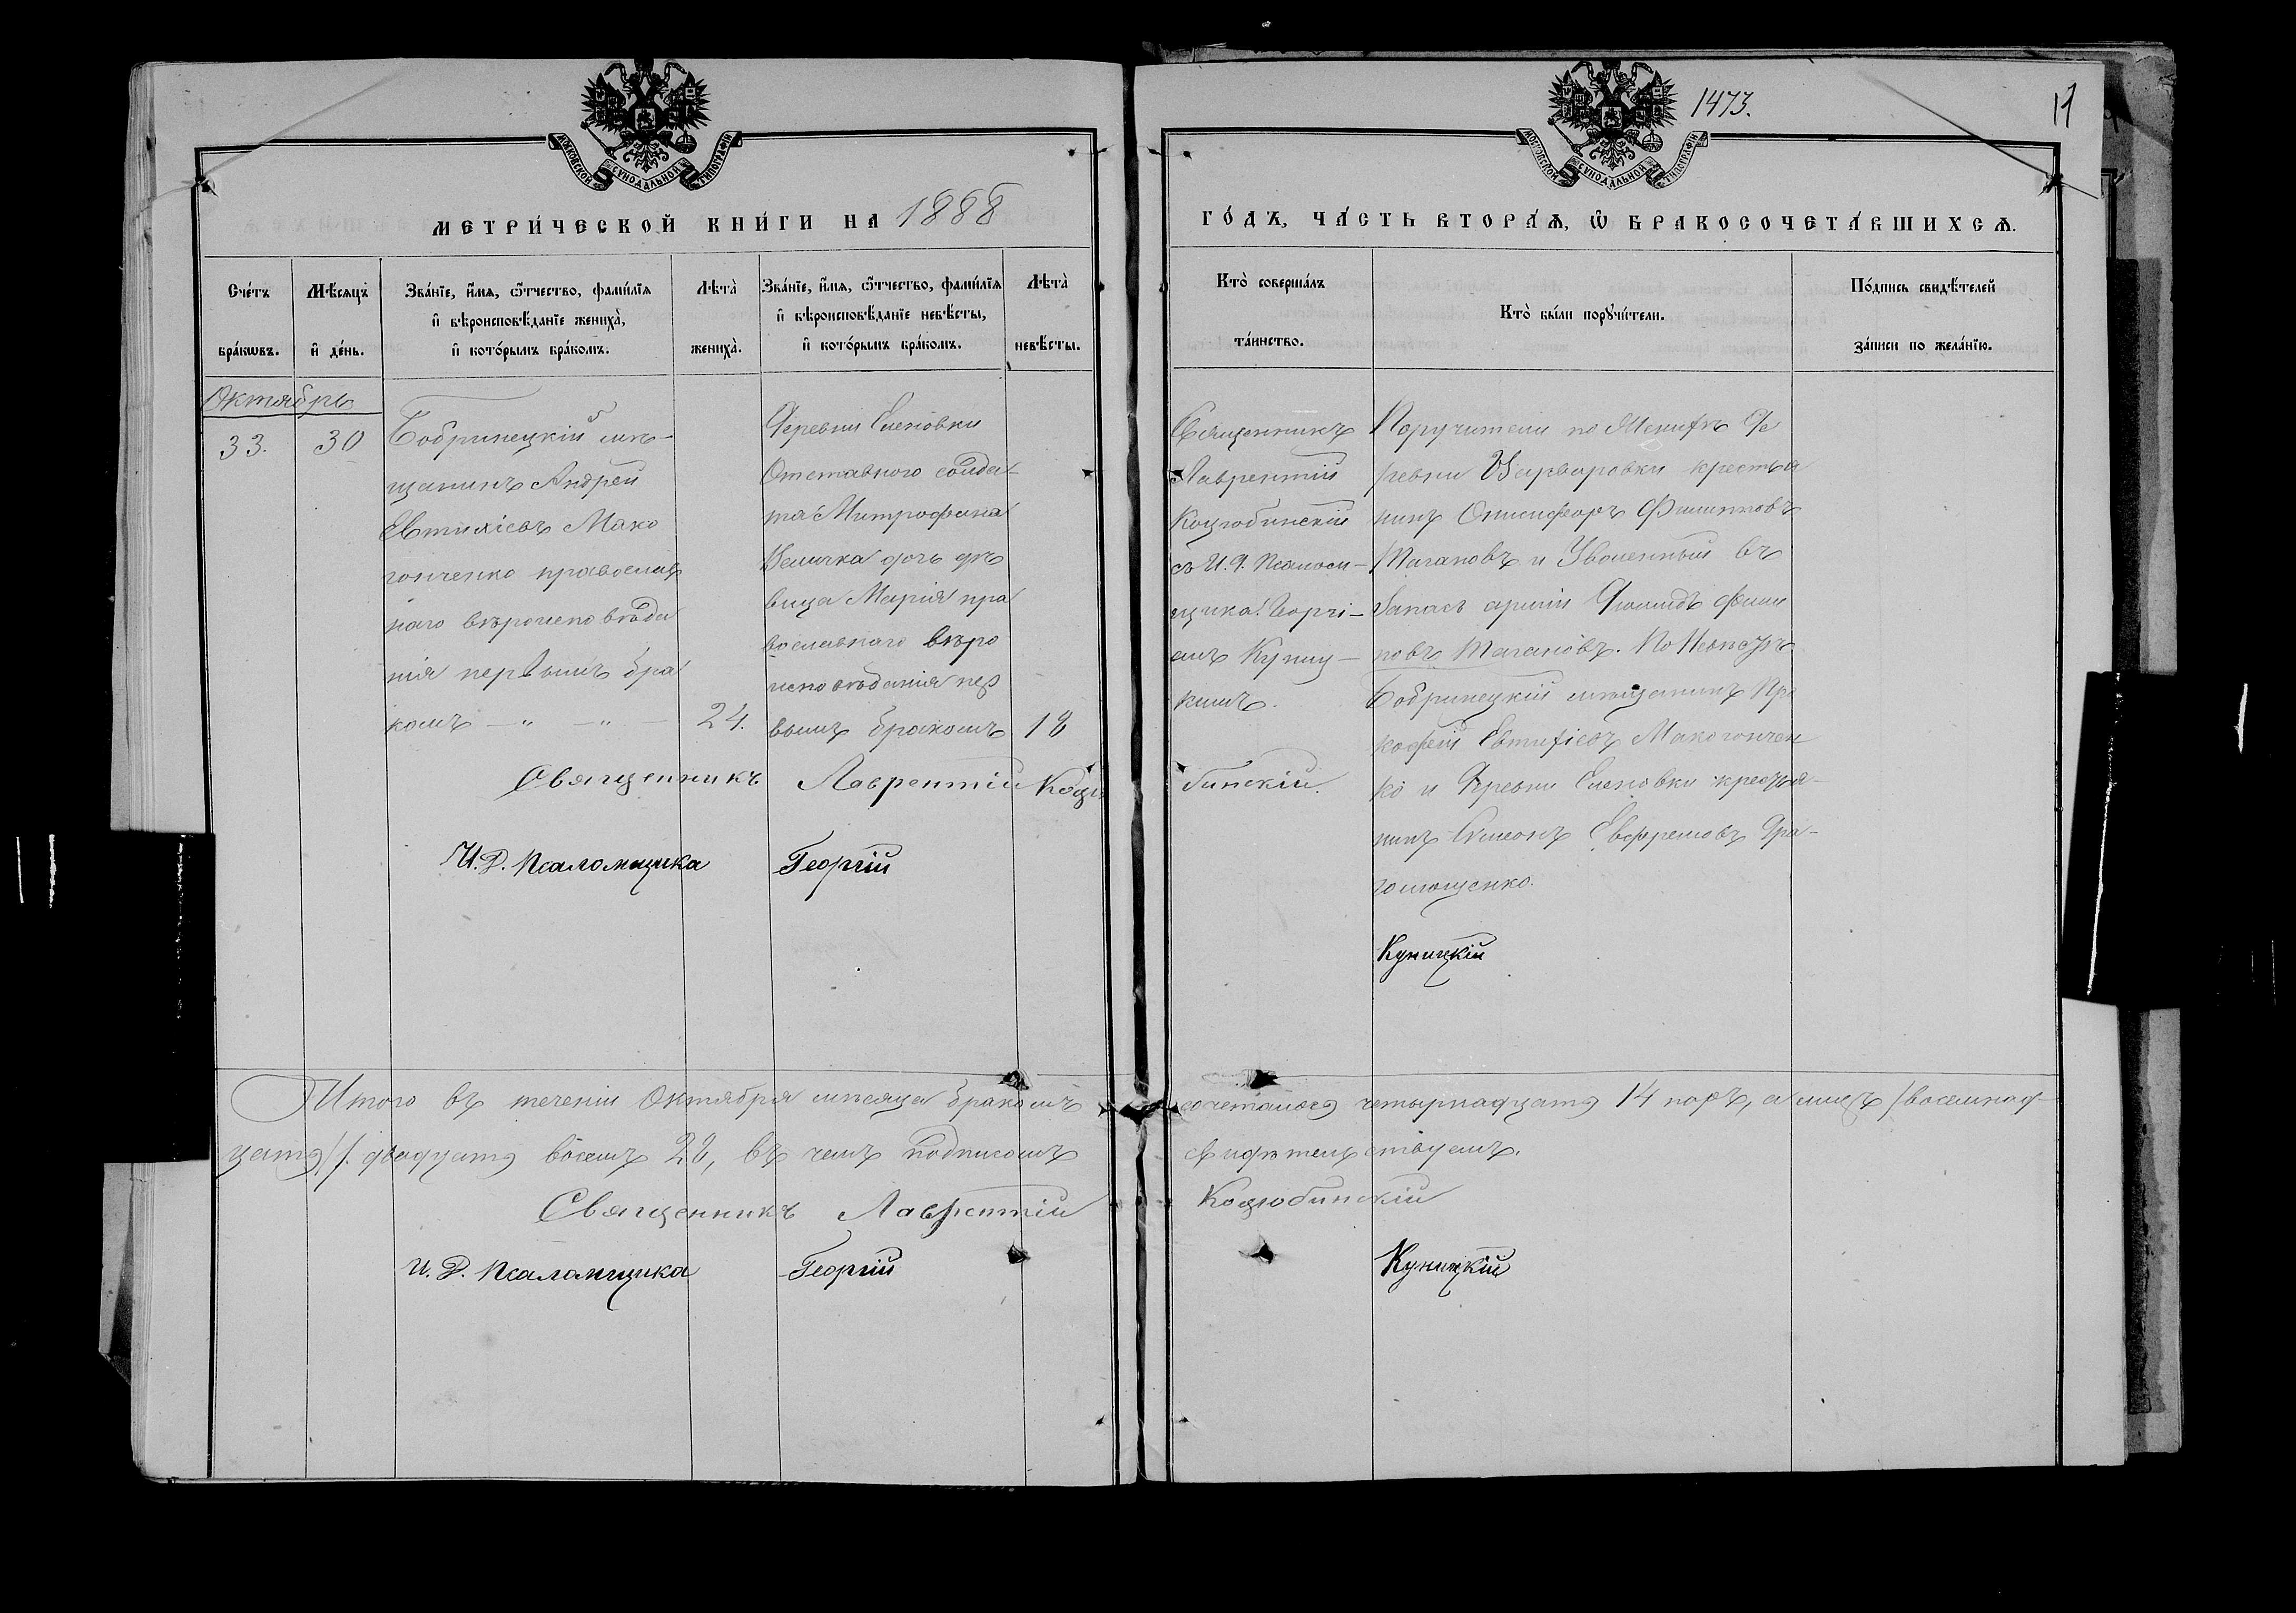 1473.
11
МОСКОВСКОЙ СѴНОДАЛЬНОЙ ТИПОГРАФІИ
МОСКОВСКОЙ СѴНОДАЛЬНОЙ ТИПОГРАФІИ
МЕТРИ́ЧЕСКОЙ КНИ́ГИ НА 1888
ГО́ДЪ, ЧА́СТЬ ВТОРА́Ѧ, Ѿ БРАКОСОЧЕТА́ВШИХСѦ.
Сче́тъ бра́кѡвъ.
Мѣ́сяцъ и҆ де́нь.
Зва́нїе, и҆́мѧ, ѻ҆́тчество, фами́лїѧ
и҆ вѣроисповѣ́данїе женихà,
и҆ кото́рымъ бра́комъ.
Лѣтà женихà.
Зва́нїе, и҆́мѧ, ѻ҆́тчество, фами́лїѧ
и҆ вѣроисповѣ́данїе невѣ́сты,
и҆ кото́рымъ бра́комъ.
Лѣтà невѣ́сты.
Ктò соверша́лъ та́инство.
Ктò бы́ли порꙋчи́тели.
По́дпись свидѣ́телей за́писи по жела́нїю.
Октябрь
33.
30
Бобринецкій мѣ-
щанинъ Андрей
Евтихіевъ Мако
гонченко православ
наго вѣроисповѣда
нія первымъ бра
комъ — " — " —
24.
Деревни Еленовки
Отставного солда-
та Митрофана
Величка дочь дѣ
вица Марія пра
вославнаго вѣро
исповѣданія пер
вымъ бракомъ
18
Священникъ
Лаврентій
Коцюбинскій
съ И. Д. Псаломщика Георгі-
емъ Куниц-
кимъ.
Поручители по Женихѣ Де
ревни Варваровки крестья
нинъ Онисифоръ Филипповъ
Тагановъ и Уволенный въ
Запасъ арміи Діомидъ Фили
повъ Тагановъ. По Невѣстѣ
Бобринецкій мѣщанинъ Про
кофій Евтихіевъ Макогончен
ко и Деревни Еленовки крестья-
нинъ Симеонъ Евфремовъ Дра-
Священникъ Лаврентій Коцюбинскій.
И. Д. Псаломщика Георгій Куницкій
Итого въ теченіи Октября мѣсяца бракомъ сочеталося четырнадцать 14 паръ, а лицъ /восемнад-
цать/ /. двадцать восемь 28, въ чемъ подписомъ свидѣтельствуемъ.
Священникъ Лаврентій Коцюбинскій
И. Д. Псаломщика Георгій Куницкій